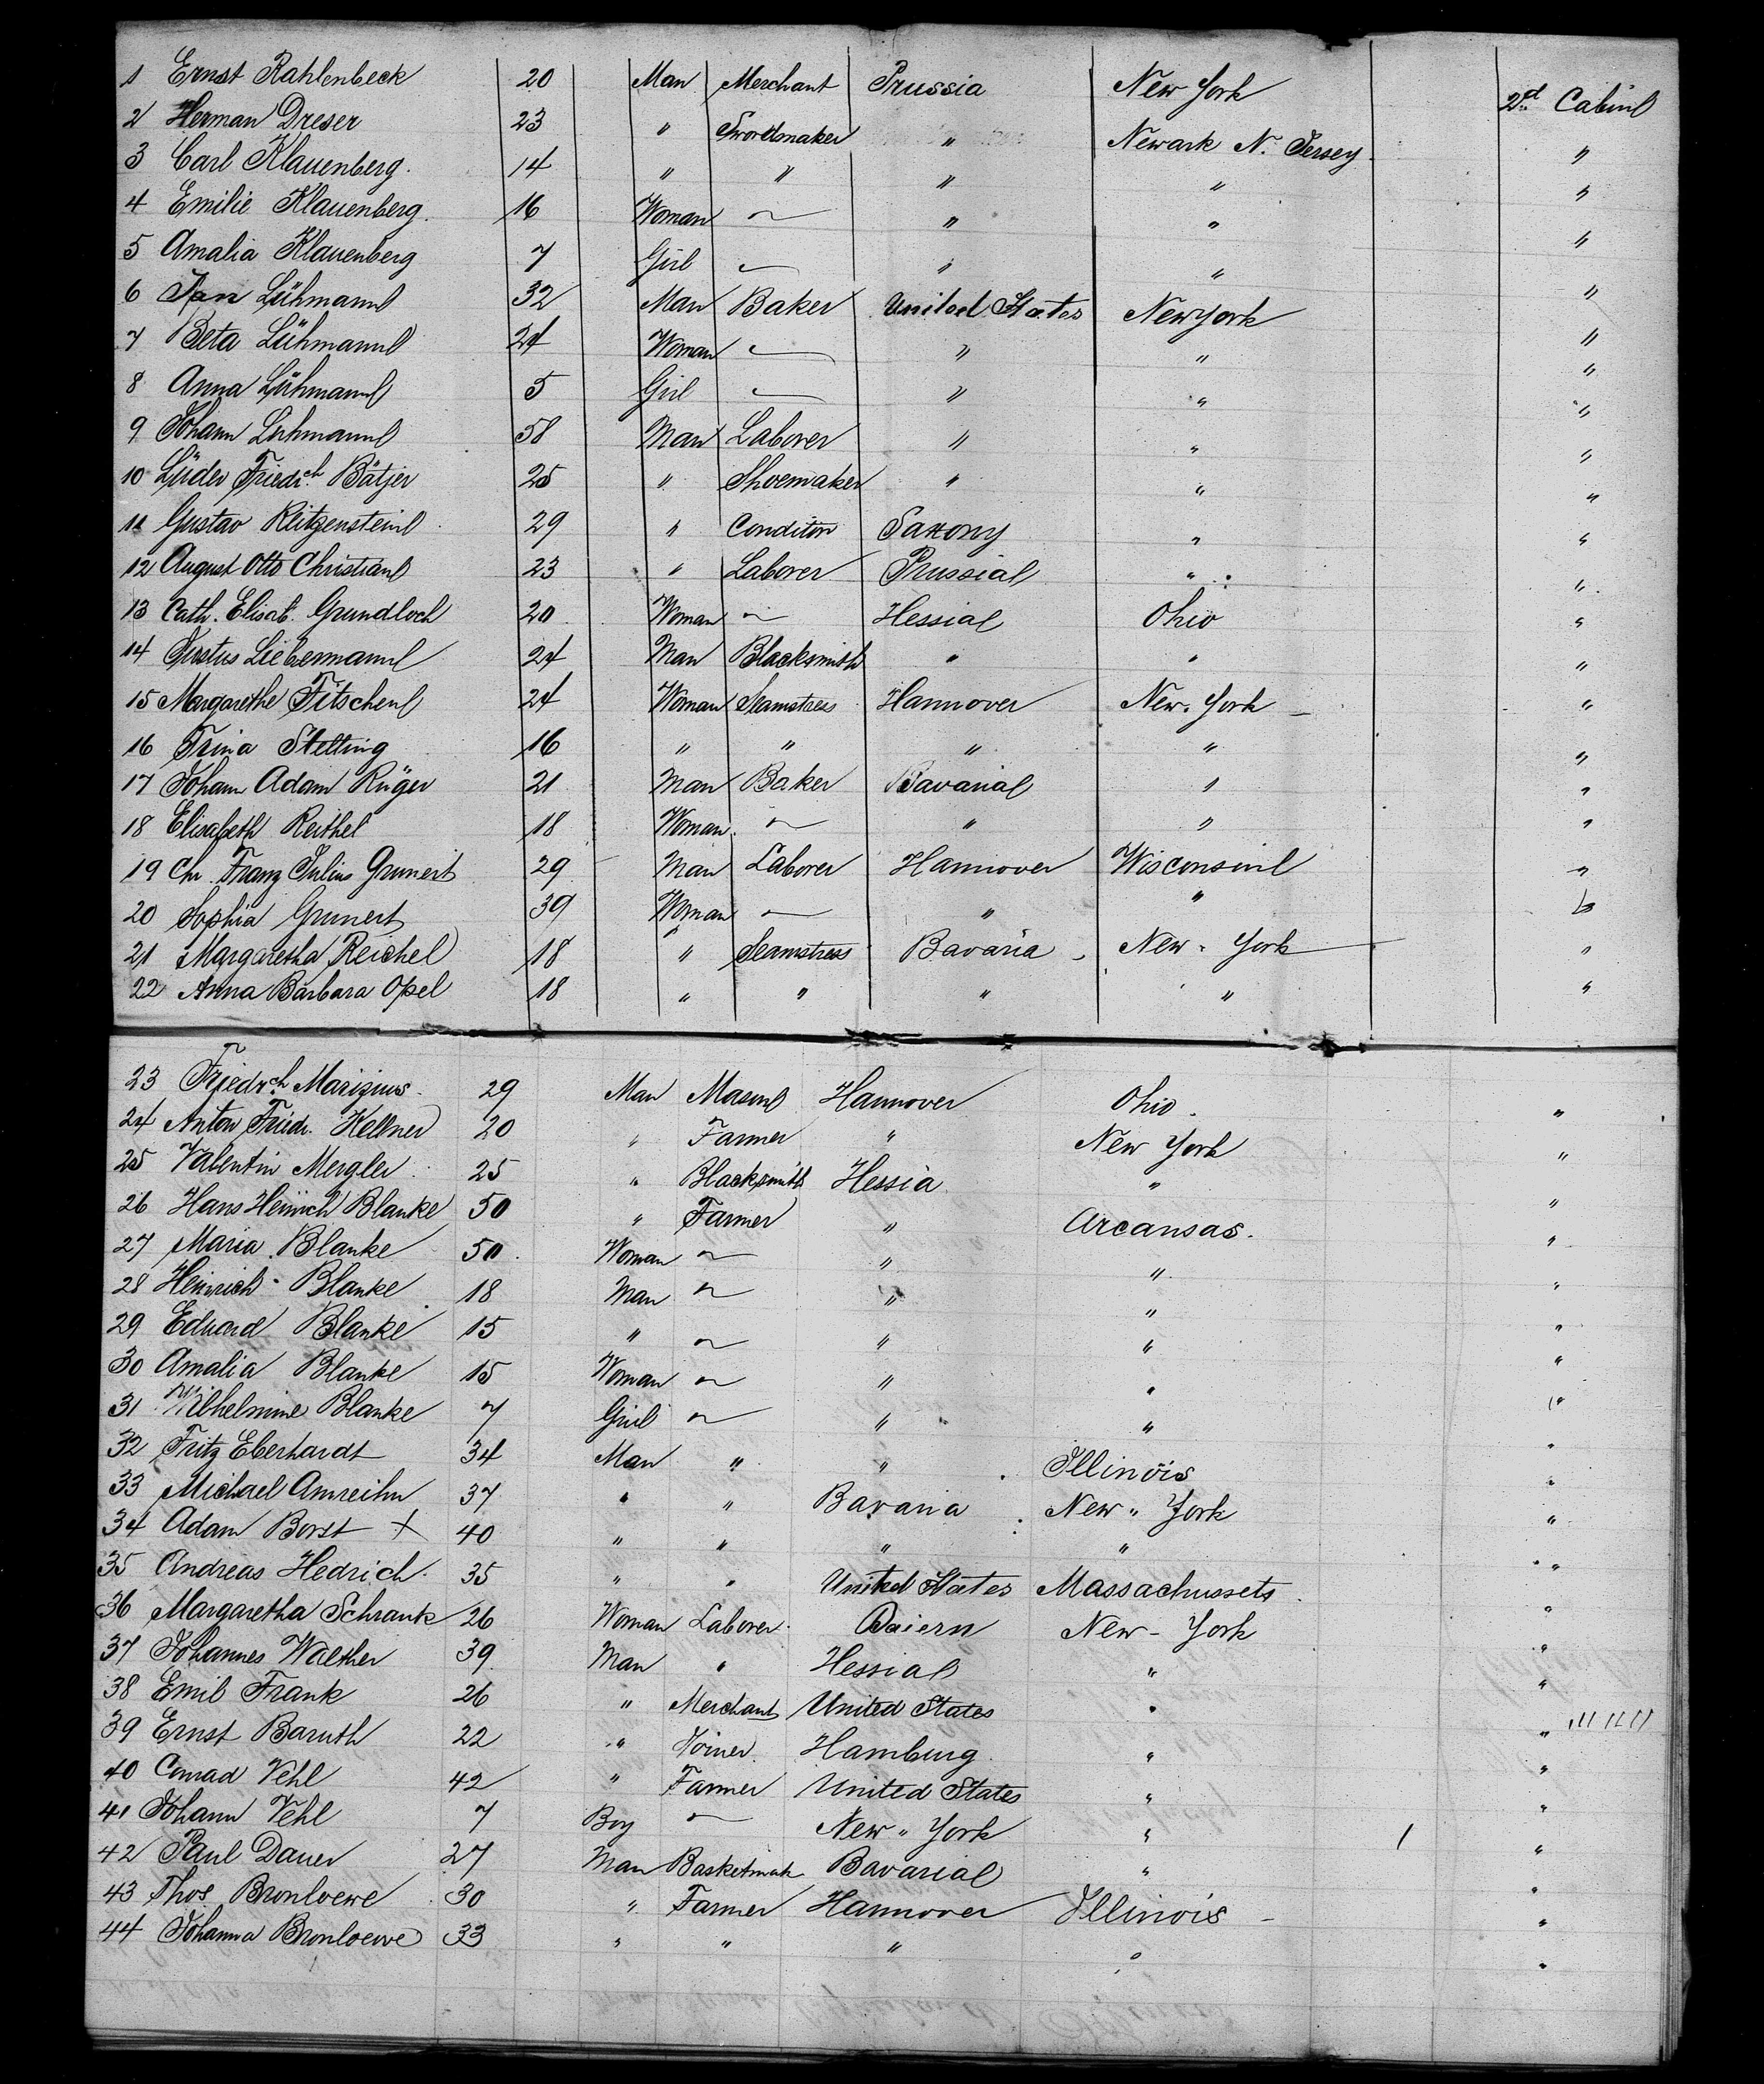 1 Ernst Rahlenbeck 20 Man Merchant Prussia New York 2d Cabin
2 Herman Dreser 23 " Swordmaker " Newark N. Jersey "
3 Carl Klauenberg. 14 " " " " "
4 Emilie Klauenberg. 16 Woman ~ " " "
5 Amalia Klauenberg 7 Girl ~ " " "
6 Jan Lühmann 32 Man Baker United States New York "
7 Beta Lühmann 24 Woman ~ " " "
8 Anna Lühmann 5 Girl ~ " " "
9 Johann Luhmann 58 Man Laborer " " "
10 Lüder Friedrch Bätjer 25 " Shoemaker " " "
11 Gustav Reitzenstein 29 " Conditor Saxony " "
12 August Otto Christian 23 " Laborer Prussia " "
13 Cath. Elisab. Grundloch 20 Woman ~ Hessia Ohio "
14 Justus Liebermann 24 Man Blacksmith " " "
15 Margarethe Fitschen 24 Woman Seamstress Hannover New York "
16 Trina Stelting 16 " " " " "
17 Johann Adam Rüger 21 Man Baker Bavaria " "
18 Elisabeth Reithel 18 Woman ~ " " "
19 Chr. Franz Julius Grunert 29 Man Laborer Hannover Wisconsin "
20 Sophia Grunert 39 Woman ~ " "
21 Margaretha Reichel 18 " Seamstress Bavaria New York "
22 Anna Barbara Opel 18 " " " " "
23 Friedrch Marizius 29 Man Mason Hannover Ohio. "
24 Anton Friedr. Kellner 20 " Farmer " New York "
25 Valentin Mergler 25 " Blacksmith Hessia " "
26 Hans Heinrich Blanke 50 " Farmer " Arcansas. "
27 Maria Blanke 50 Woman ~ " " "
28 Heinrich Blanke 18 Man ~ " " "
29 Eduard Blanke 15 " ~ " " "
30 Amalia Blanke 15 Woman ~ " " "
31 Wilhelmine Blanke 7 Girl ~ " " "
32 Fritz Eberhardt 34 Man " " Illinois "
33 Michael Amreihn 37 " " Bavaria New York "
34 Adam Borst + 40 " " " " "
35 Andreas Hedrich. 35 " " United States Massachussets "
36 Margaretha Schrank 26 Woman Laborer Baiern New - York "
37 Johannes Walther 39 Man " Hessia " "
38 Emil Frank 26 " Merchant United States " "
39 Ernst Baruth 22 " Joiner. Hamburg " "
40 Conrad Vehl 42 " Farmer United States " "
41 Johann Vehl 7 Boy ~ New York " 1 "
42 Paul Dauer 27 Man Basketmak Bavaria " "
43 Thos Bronloewe 30 " Farmer Hannover Illinois "
44 Johanna Bronloewe 33 " " " " "